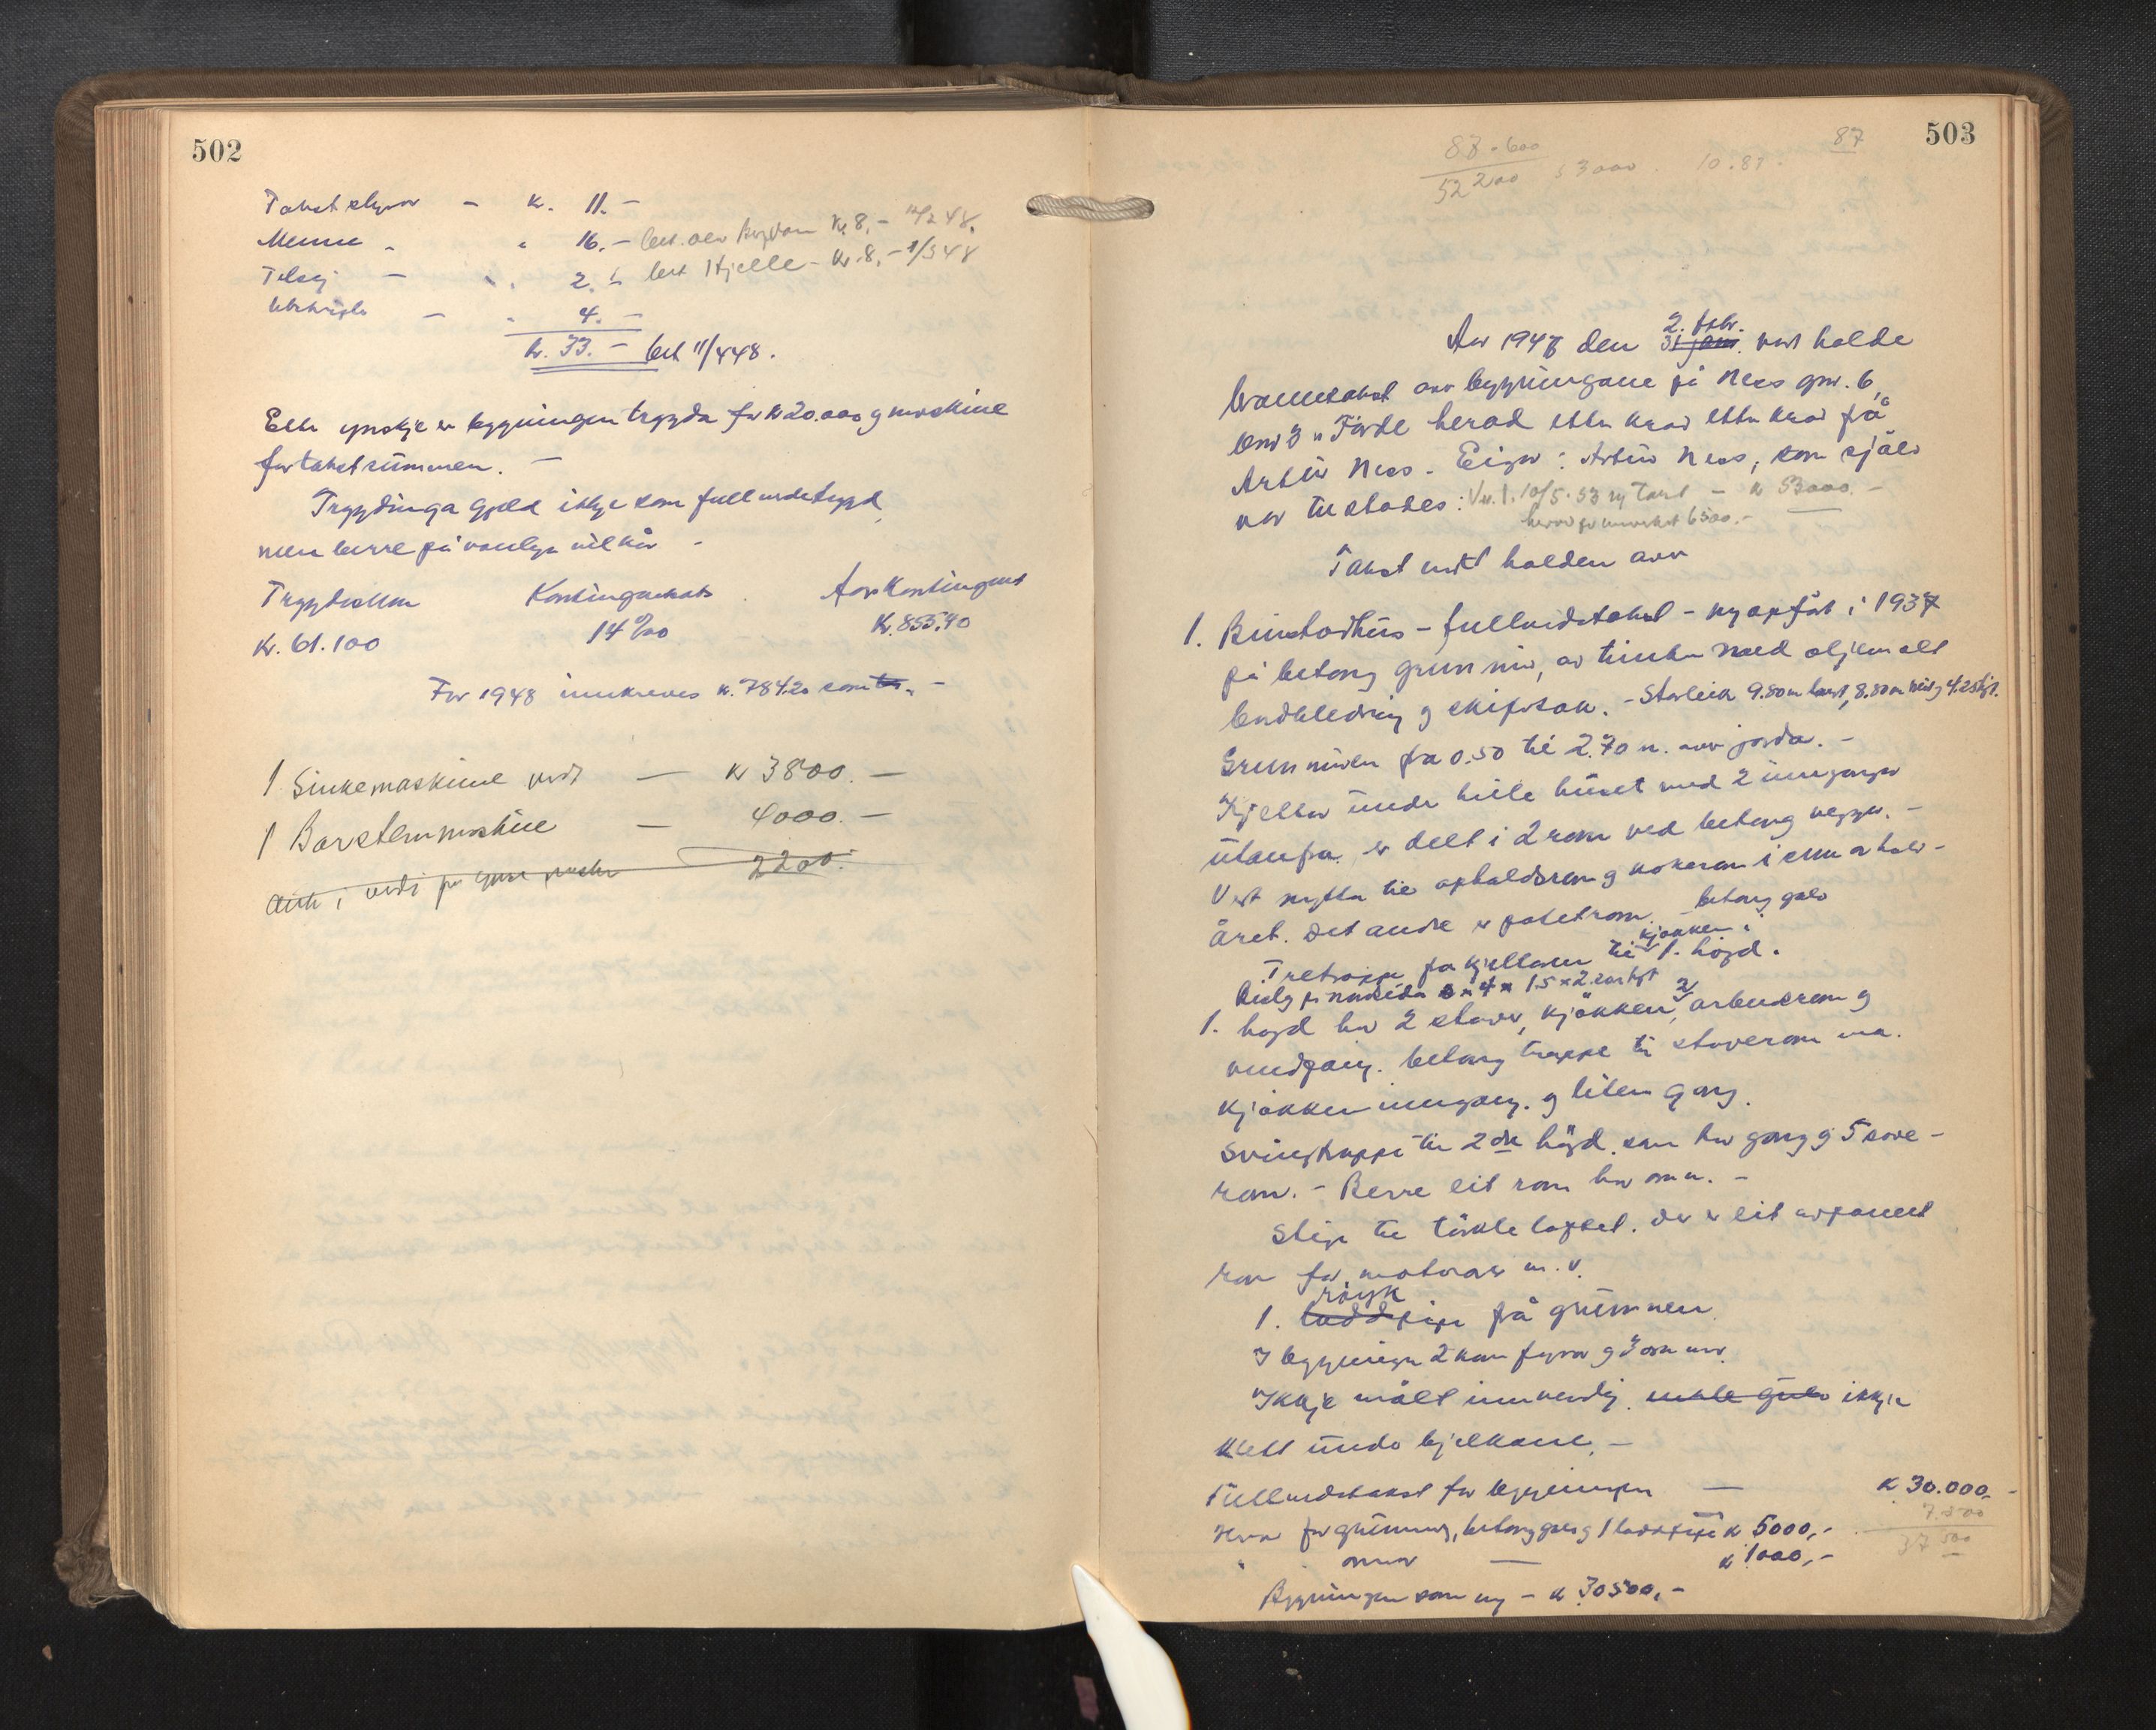 502
Takst styrar - kr. 11.-
Menn - " 16.- bet. Kr. 8,- 12/2 48.
Tilsyn - " 2.- bet Hjelle - kr. 8,- 1/3 48
Utskrift - " 4.-
kr. 33.- bet 11/4 48.
Etter ynskje er bygningen trygda for kr 20.000 og maskine
for takstsummen. -
Trygdinga gjeld ikkje som fullverdetrygd,
men berre på vanlege vilkår -
Trygdesum Kontingentsats Årskontingent
Kr. 61.100 14 ‰ Kr. 855,40
For 1948 innkreves kr. 784.20
1 Sinkemaskine verdi - kr 3800.-
1 Børstemaskine - 4000.-
2200.-
503
87
87 · 600
52200 53000. 10.87.
År 1948 den 31 jan. 2. febr. vart halde
branntakst av bygningane på Ness gnr. 6,
bnr 3 i Førde herad etter krav etter krav frå
Artur Ness. Eigar: Artur Ness, som sjølv
var tilstades: 10/5.53 ny takst - kr 53000.-
herav for murverket 6500.-
Takst vart halden avv
1. Bustadhus - fullverdetakst - ny oppført i 1937
på betong grunnmur, av timber med oljemalt
bordkledning og skifertak. - Storleik 9.80 m langt, 8.80 m breidt og 4.25 høgt.
Grunnmuren fra 0.50 til 2.70 m. over jorda. -
Kjellar under heile huset med 2 innganger
utanfra er delt i 2 rom ved betong vegger. -
Vert nytta til opholdsrom og kokerom i sumarhalv-
året. Det andre er potetrom. - betong golv
Tretrapp fra kjellaren til kjøkken i 1. høgd.
Bislag på nordsida 4 x 1.5 x 2. høgt
1. høgd har 2 stover, kjøkken, 2 arbeidsrom og
vindfang. betong trappe til stoverom
kjøkken inngang. og liten gang.
Svingtrappe til 2dre høgd. som har gang og 5 sove-
rom. - Berre eit rom har omn. -
Stige til tørkeloftet. der er eit avpanelt
rom for motorar m. v.
1. ladd røyk pipe frå grunnen.
I bygningen 2 komfyrar og 3 omnar.
Ikkje målt innvendig. ikkje
kledt under bjelkane. -
Fullverdetakst for bygningen - kr 30.000.-
Herav for grunnmur, betonggolv og 1 laddpipe kr 5000,- 7.500
" omnar - kr 1000,- 37 500
Bygningen som ny - kr 30500,-